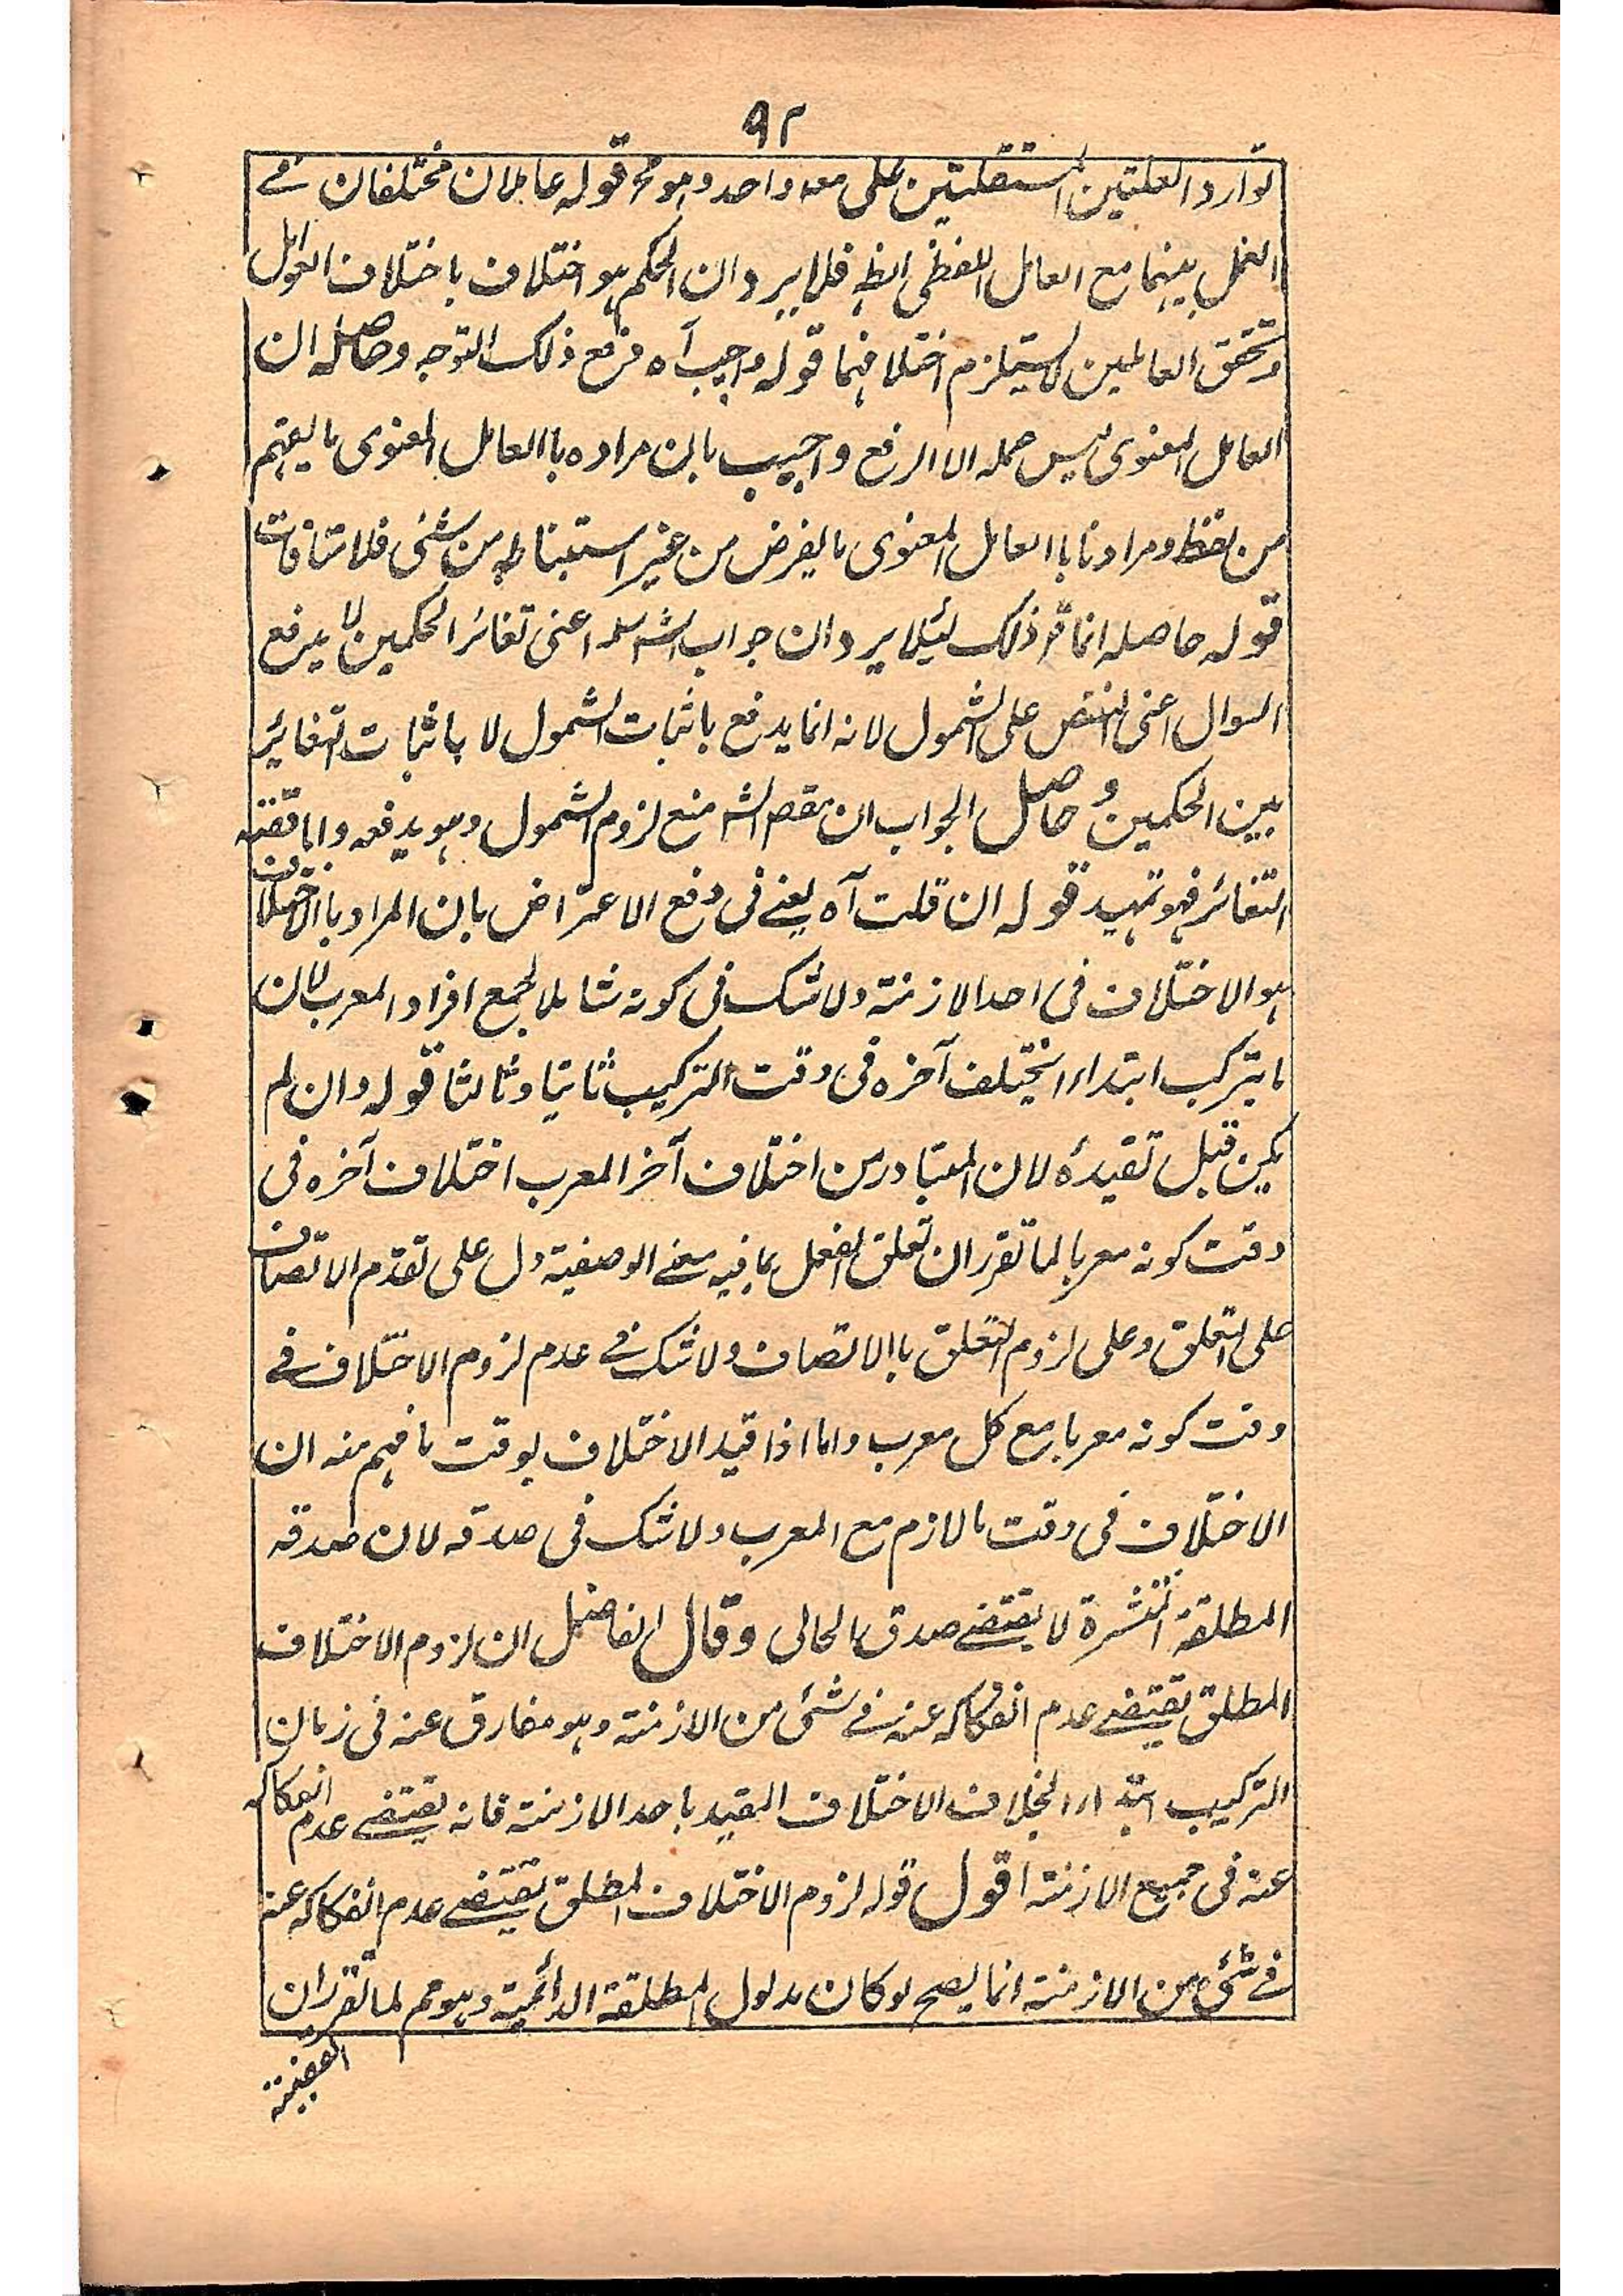 ٩٢
توارد العلتين المستقلتين على معه واحد وهو مح قوله عاملان مختلفان في
العمل بينهما مع العامل اللفظى ايضه فلا يرد ان الحكم هو اختلاف باختلاف العوامل
وتحقق العاملين لا يستلزم اختلافهما قوله واجيب آه دفع ذلك التوجه وحاصله ان
العامل المعنوى ليس عمله الا الرفع واجيب بان مراده باالعامل المعنوى ما يفهم
من لفظ ومرادنا باالعامل المعنوى ما يفرض من غير استنباطه من شئى فلا منافات
قوله حاصله انما قر ذلك ليئلا يرد ان جواب الشه اعنى تغائر الحكمين لا يدفع
السوال اعنى النقض على الشمول لانه انما يدفع باثبات الشمول لا باثبات التغائر
بين الحكمين و حاصل الجواب ان مقصه الشه منع لزوم الشمول وهو يدفعه واما قضية
التغائر فهو تمهيد قوله ان قلت آه يعنے فى دفع الاعتراض بان المراد باالاختلاف
هو الاختلاف فى احد الازمنة ولا شك فى كونه شاملا لجمع افراد المعرب لان
ما يتركب ابتداء يختلف آخره فى وقت التركيب ثانيا وثالثا قوله وان لم
يكن قبل تقيده لان المتبادر من اختلاف آخر المعرب اختلاف آخره فى
وقت كونه معربا لما تقرر ان تعلق الفعل بما فيه معنے الوصفية دل على تقدم الاتصاف
على التعلق وعلى لزوم التعلق باالاتصاف ولا شك فے عدم لزوم الاختلاف فے
وقت كونه معربا مع كل معرب واما اذا قيد الاختلاف بوقت ما فهم منه ان
الاختلاف فى وقت ما لازم مع المعرب ولا شك فى صدقه لان صدقه
المطلقة المنتشرة لا يقتضے صدق الحالى وقال الفاضل ان لزوم الاختلاف
المطلق يقتضے عدم انفكاكه عنه فے شئى من الازمنة وهو مفارق عنه فى زمان
التركيب ابتداء بخلاف الاختلاف المقيد باحد الازمنة فانه يقتضے عدم انفكاكه
عنه فى جميع الازمنة اقول قوله لزوم الاختلاف المطلق يقتضے عدم انفكاكه عنه
فے شئى من الازمنة انما يصح لو كان مدلول المطلقة الدائمية وهو مم لما تقرر ان
القضية